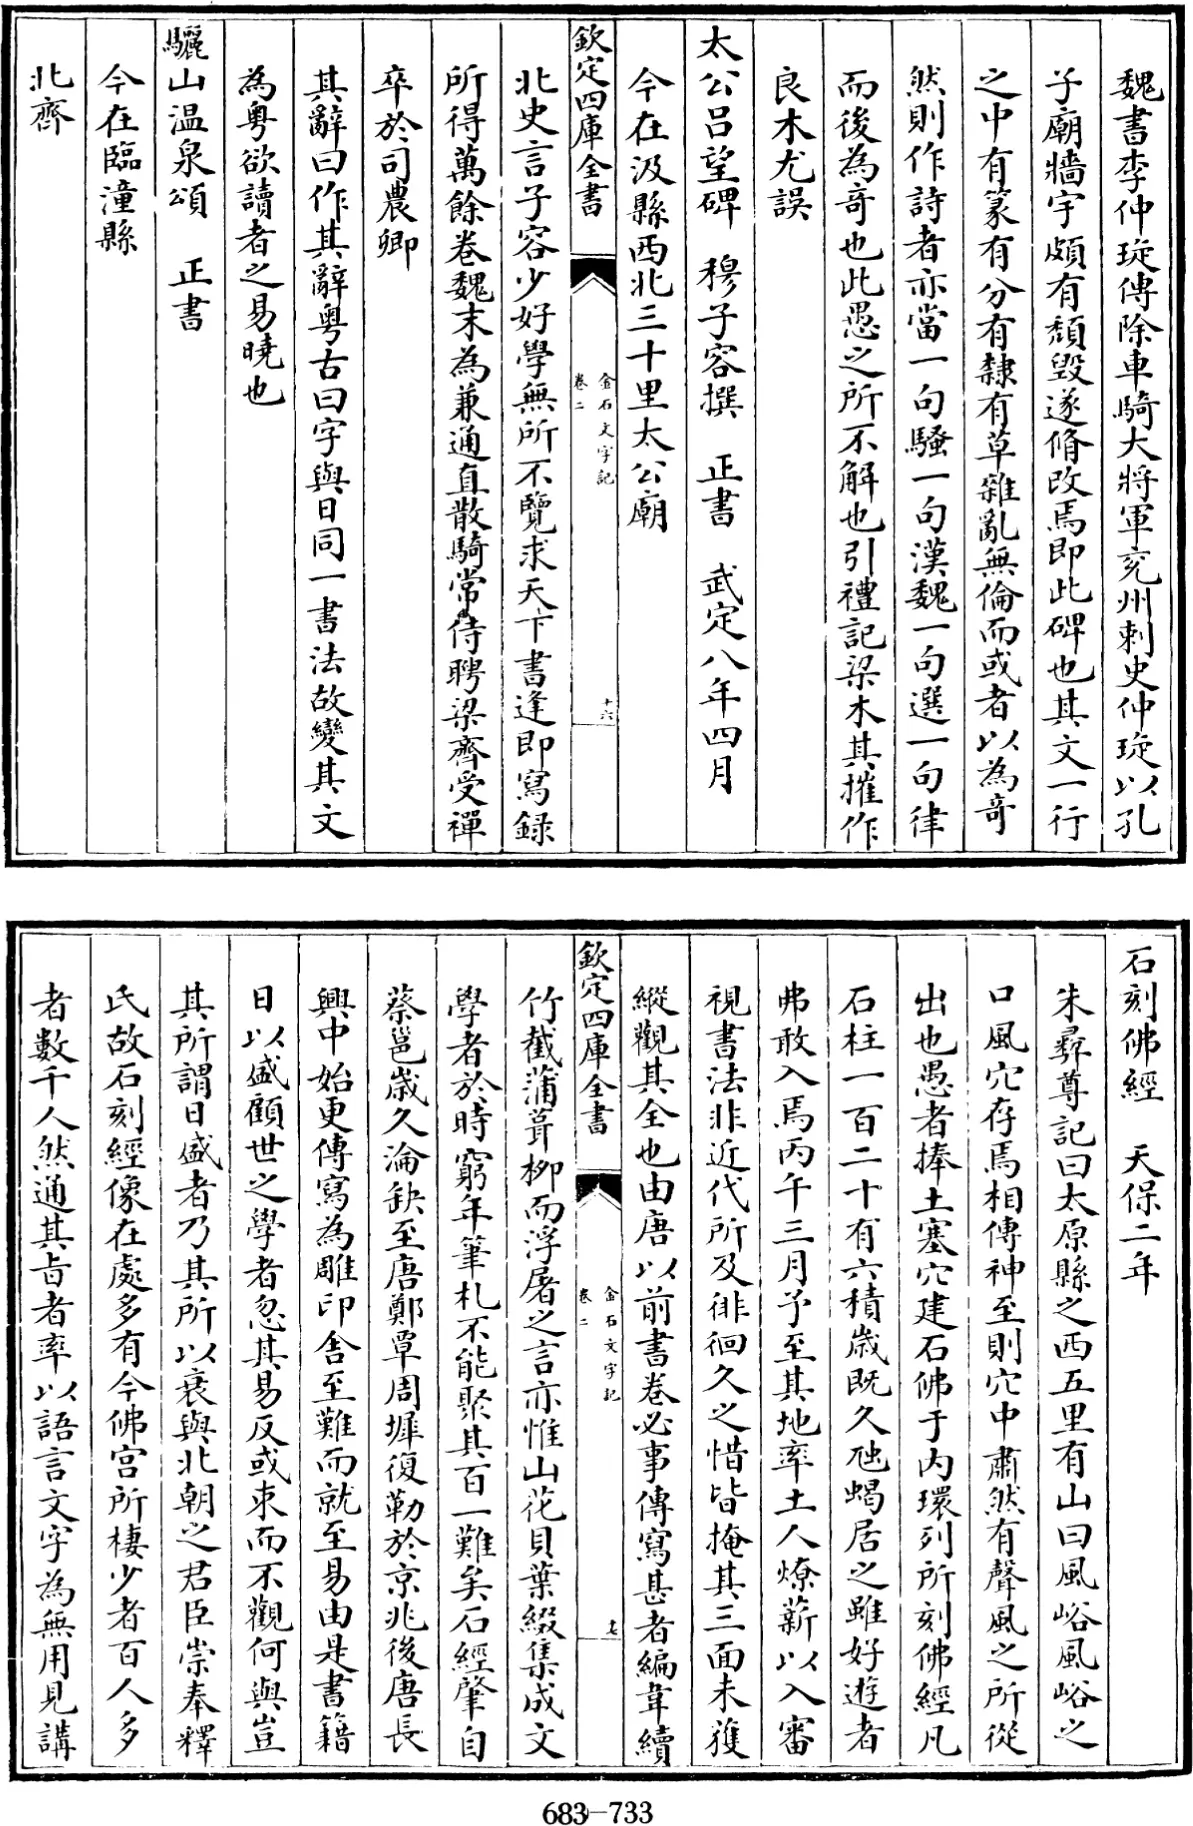 魏書李仲琁傳除車騎大將軍兗州刺史仲琁以孔
子廟牆宇頗有頹毀遂脩改焉即此碑也其文一行
之中有篆有分有隸有草雜亂無倫而或者以為奇
然則作詩者亦當一句騷一句漢魏一句選一句律
而後為奇也此愚之所不解也引禮記梁木其摧作
良木尤誤
太公呂望碑 穆子容撰 正書 武定八年四月
今在汲縣西北三十里太公廟
欽定四庫全書
金石文字記
卷二
十六
北史言子容少好學無所不覽求天下書逢即寫録
所得萬餘卷魏末為兼通直散騎常侍聘梁齊受禪
卒於司農卿
其辭曰作其辭粤古曰字與日同一書法故變其文
為粤欲讀者之易曉也
驪山温泉頌 正書
今在臨潼縣
北齊
石刻佛經 天保二年
朱彛尊記曰太原縣之西五里有山曰風峪風峪之
口風穴存焉相傳神至則穴中肅然有聲風之所從
出也愚者捧土塞穴建石佛于内環列所刻佛經凡
石柱一百二十有六積歲既久虺蝎居之雖好遊者
弗敢入焉丙午三月予至其地率土人燎薪以入審
視書法非近代所及徘徊久之惜皆掩其三面未獲
縱觀其全也由唐以前書卷必事傳寫甚者編韋續
欽定四庫全書
金石文字記
卷二
十七
竹截蒲葺柳而浮屠之言亦惟山花貝葉綴集成文
學者於時窮年筆札不能聚其百一難矣石經肇自
蔡邕歲久淪缺至唐鄭覃周墀復勒於京兆後唐長
興中始更傳寫為雕印舎至難而就至易由是書籍
日以盛顧世之學者忽其易反或束而不觀何與豈
其所謂日盛者乃其所以衰與北朝之君臣崇奉釋
氏故石刻經像在處多有今佛宫所棲少者百人多
者數千人然通其旨者率以語言文字為無用見講
683-733